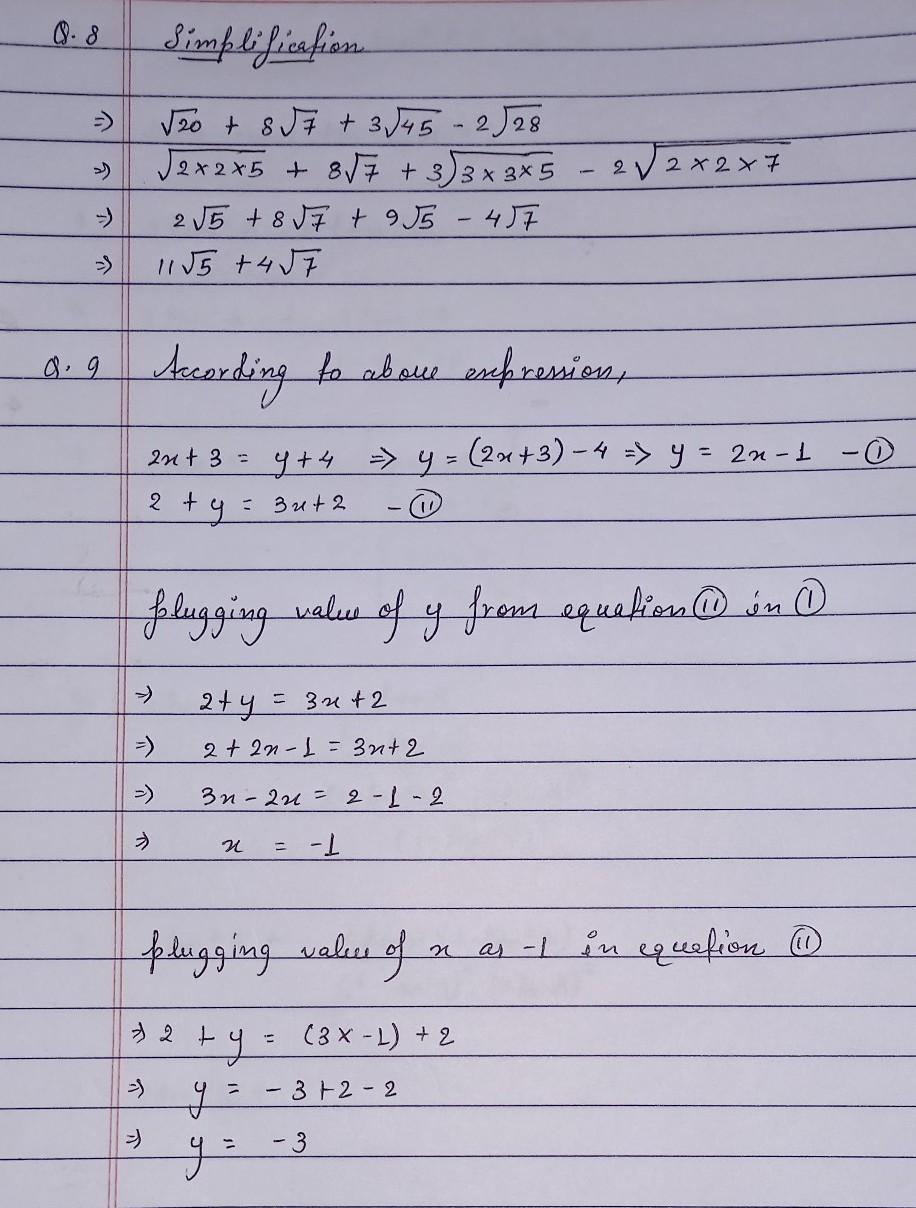 Q. 8 Simplification
⇒ √20 + 8√7 + 3√45 - 2√28
⇒ √2×2×5 + 8√7 + 3√3×3×5 - 2√2×2×7
⇒ 2√5 + 8√7 + 9√5 - 4√7
⇒ 11√5 + 4√7
Q. 9 According to above expression,
2x + 3 = y + 4 ⇒ y = (2x+3) - 4 ⇒ y = 2x - 1 - Ⓘ
2 + y = 3x + 2 - ⑪
plugging value of y from equation ⑪ in Ⓘ
⇒ 2 + y = 3x + 2
⇒ 2 + 2x - 1 = 3x + 2
⇒ 3x - 2x = 2 - 1 - 2
⇒ x = -1
plugging value of x as -1 in equation ⑪
⇒ 2 + y = (3 × -1) + 2
⇒ y = - 3 + 2 - 2
⇒ y = - 3